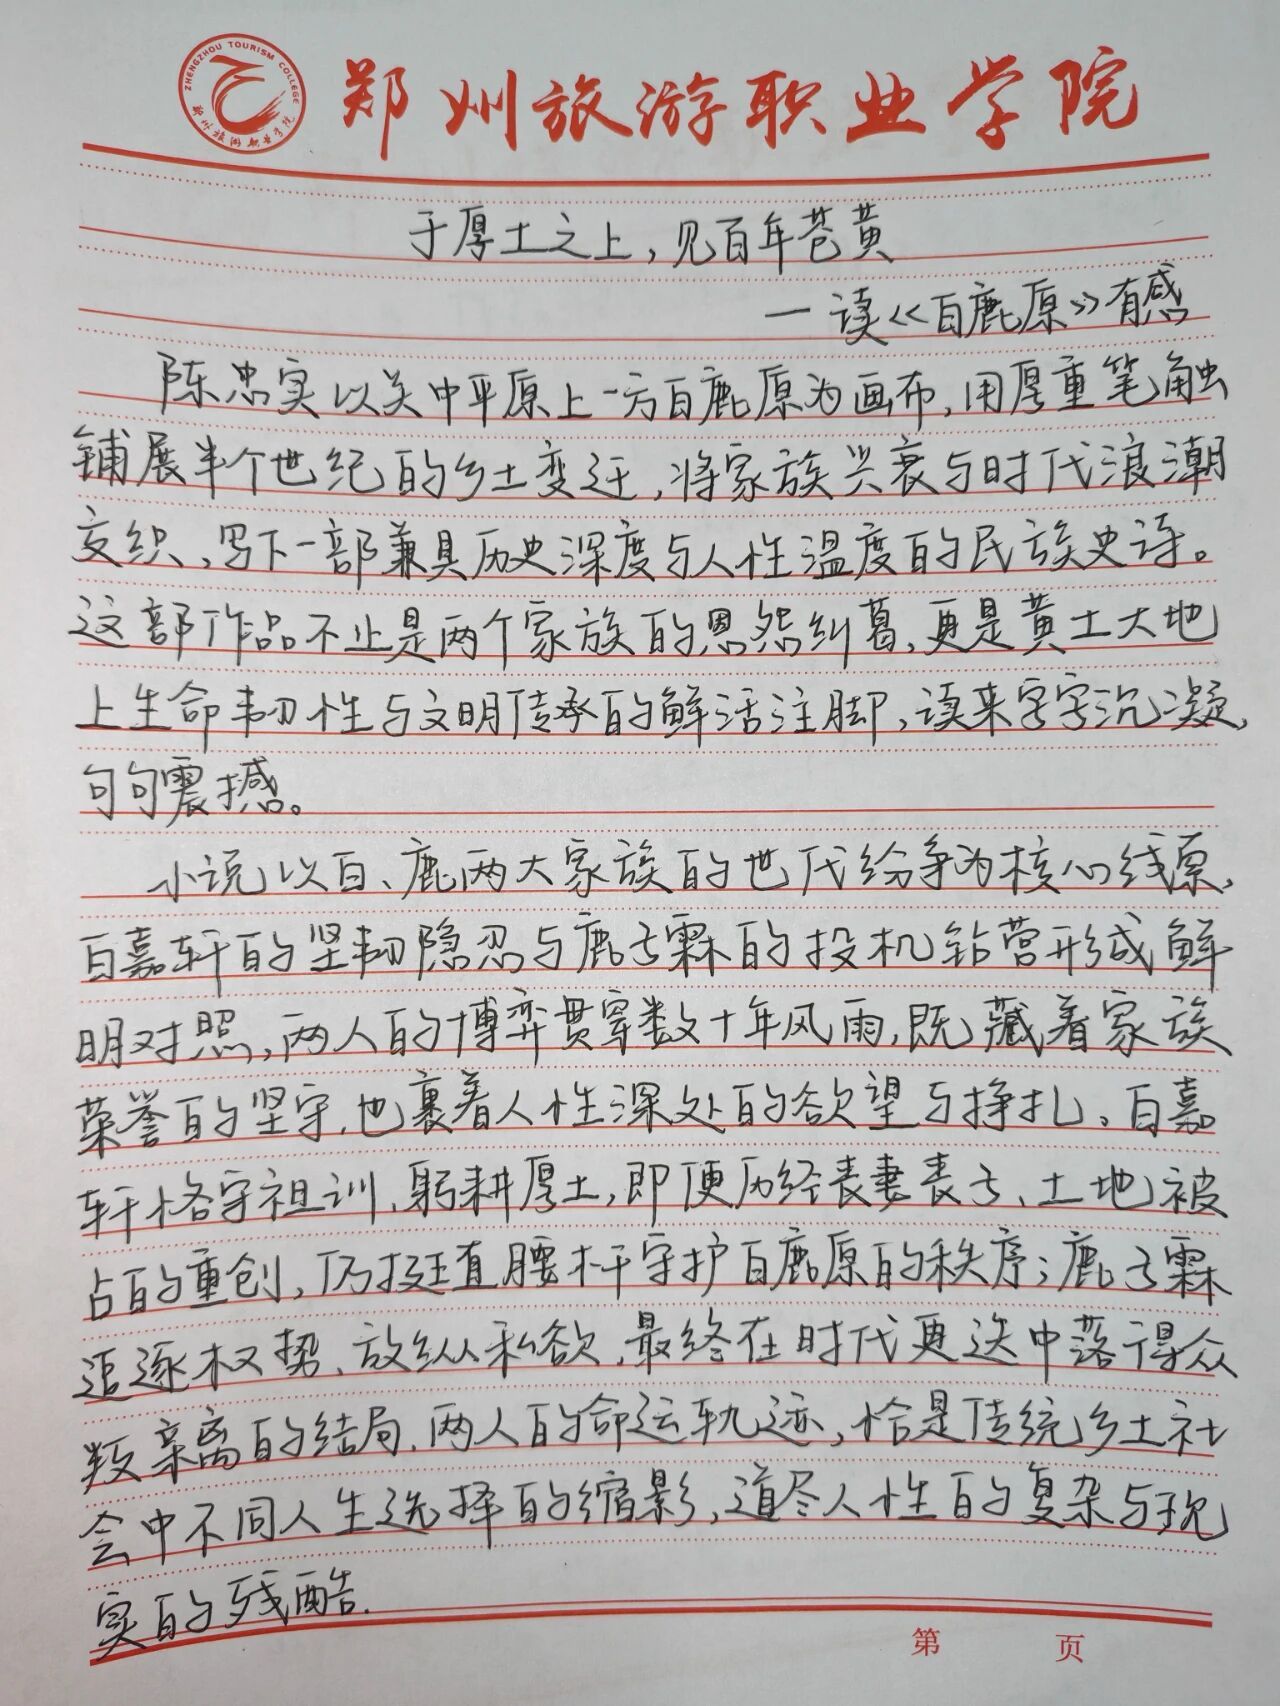 ZHENGZHOU TOURISM COLLEGE
郑州旅游职业学院
郑州旅游职业学院
于厚土之上，见百年苍黄
—读《白鹿原》有感
陈忠实以关中平原上一方白鹿原为画布，用厚重笔触
铺展半个世纪的乡土变迁，将家族兴衰与时代浪潮
交织，写下一部兼具历史深度与人性温度的民族史诗。
这部作品不止是两个家族的恩怨纠葛，更是黄土大地
上生命韧性与文明传承的鲜活注脚，读来字字沉凝，
句句震撼。
小说以白、鹿两大家族的世代纷争为核心线索，
白嘉轩的坚韧隐忍与鹿子霖的投机钻营形成鲜
明对照，两人的博弈贯穿数十年风雨，既藏着家族
荣誉的坚守，也裹着人性深处的欲望与挣扎。白嘉
轩恪守祖训、躬耕厚土，即便历经丧妻丧子、土地被
占的重创，仍挺直腰杆守护白鹿原的秩序；鹿子霖
追逐权势、放纵私欲，最终在时代更迭中落得众
叛亲离的结局。两人的命运轨迹，恰是传统乡土社
会中不同人生选择的缩影，道尽人性的复杂与现
实的残酷.
第 页